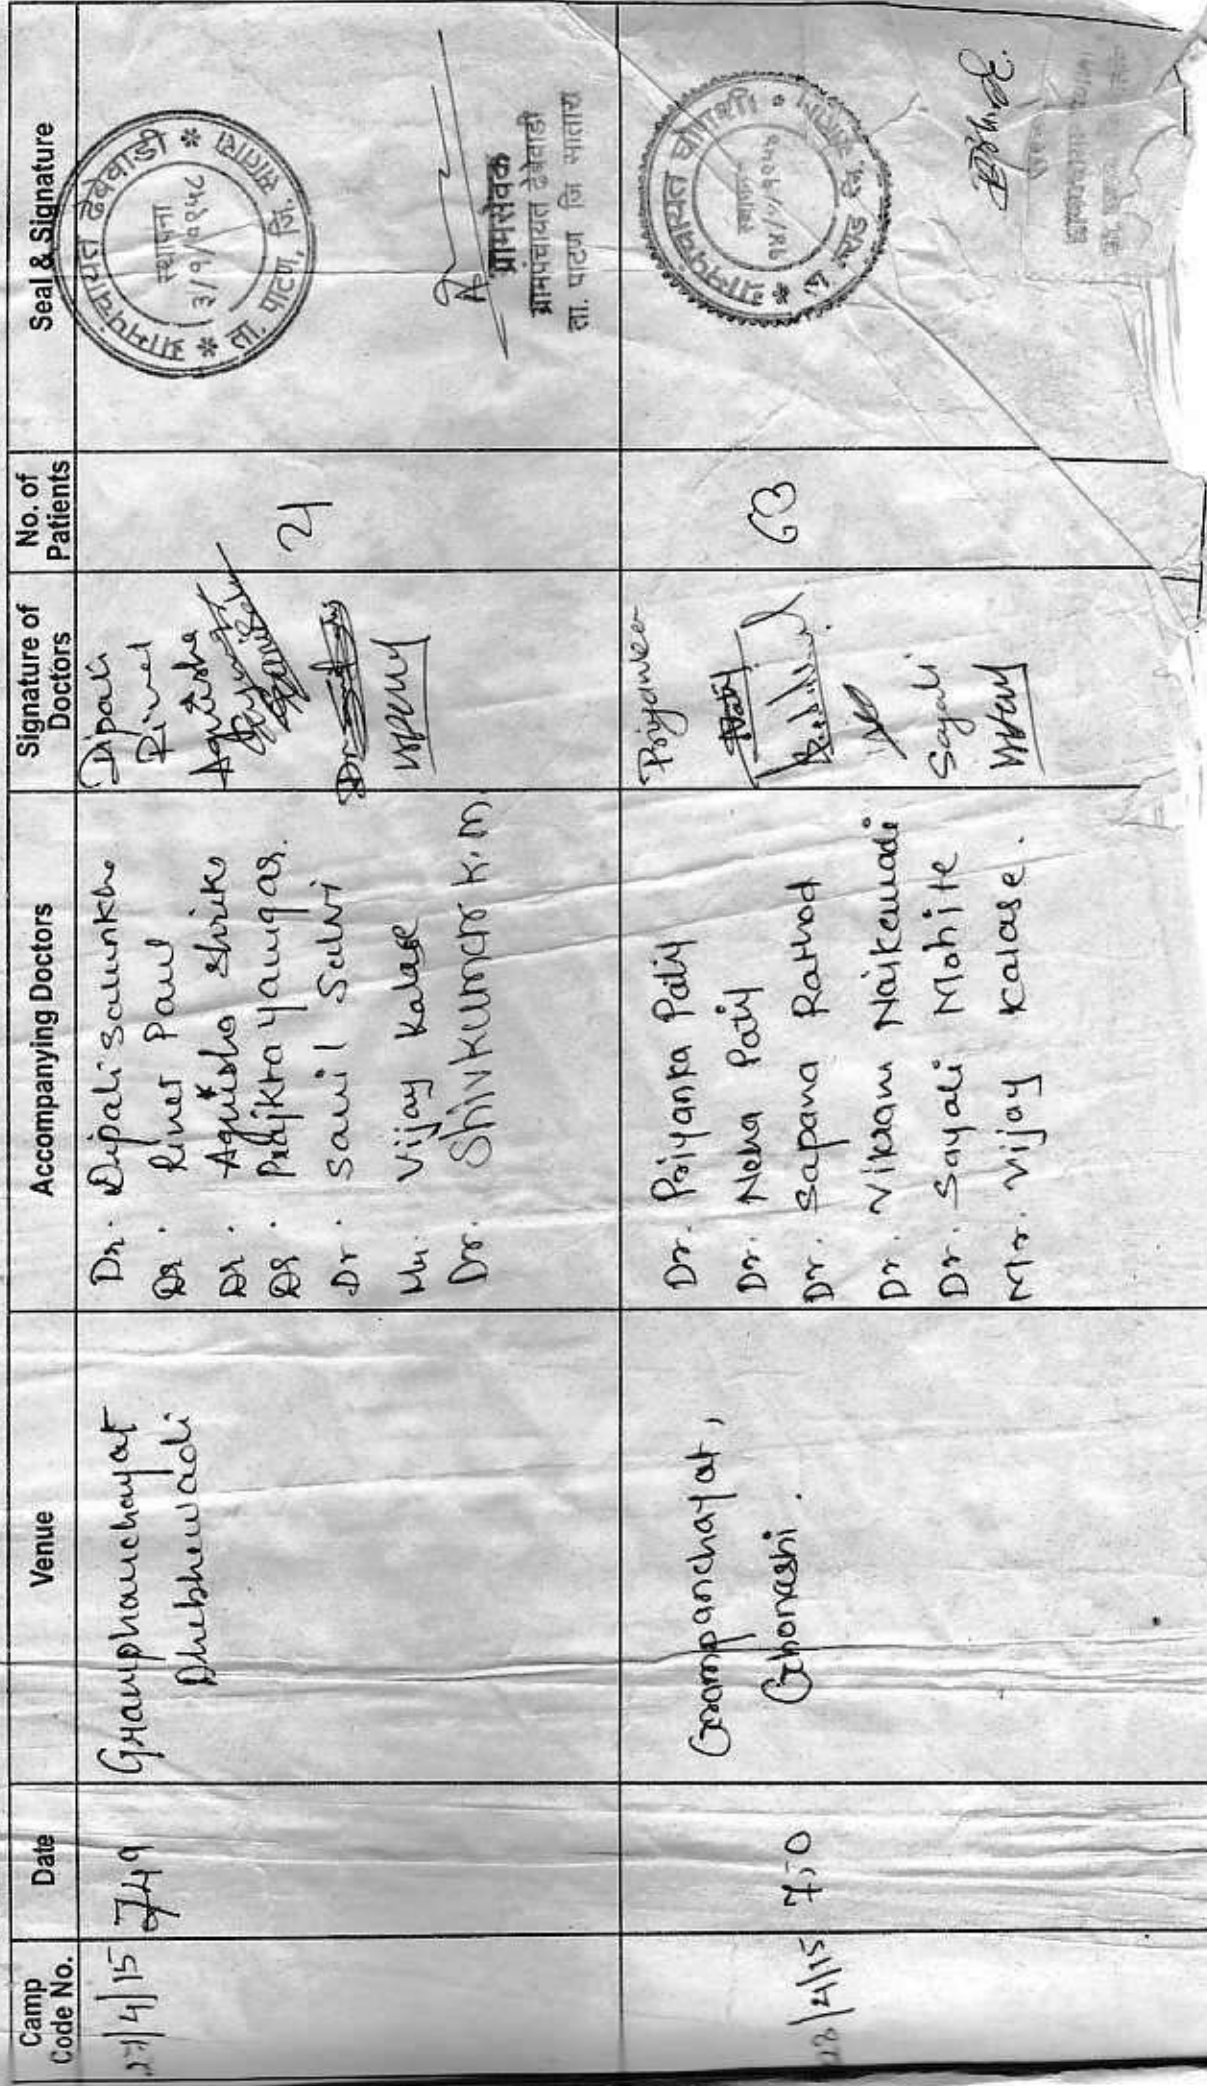 Camp
Code No.
Date
Venue
Accompanying Doctors
Signature of
Doctors
No. of
Patients
Seal & Signature
27/4/15
749
Gramphanchayat
Dhebhewadi
Dr. Dipali Salunkhe
Dr. Rinet Paul
Dr. Aquisha Shirike
Dr Prajkta Yaugar.
Dr. Sawil Salvi
Mr. Vijay Kalase
Dr. Shivkumar K.M.
Dipali
Rinet
Aquisha
21
ग्रामपंचायत ढेबेवाडी
ता. पाटण, जि. सातारा
स्थापना
ग्रामसेवक
ग्रामपंचायत ढेबेवाडी
ता. पाटण जि सातारा
28/4/15
750
Grampanchayat,
Ghonashi.
Dr. Priyanka Patil
Dr. Neha Patil
Dr. Sapana Rathod
Dr. Vikram Naikawadi
Dr. Sayali Mohite
Mr. Vijay Kalase.
Priyanka
Patil
Sayali
63
ग्रामपंचायत घोणशी
स्थापना